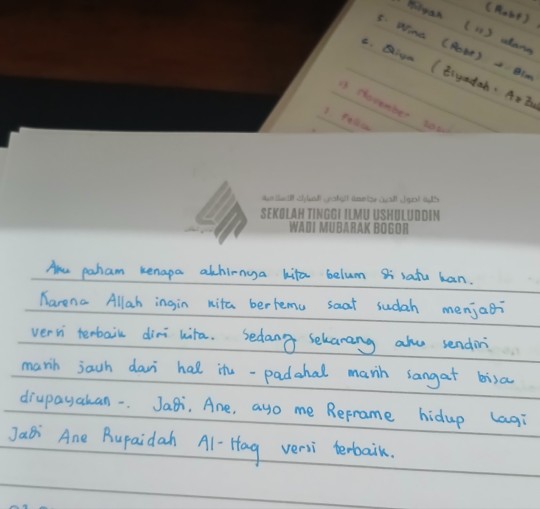 (Rabt)
5. Wina (Rabt)
6.
(Ziyadah :
November
كلية اصول الدين بجامعة الوادي المبارك الاسلامية
SEKOLAH TINGGI ILMU USHULUDDIN
WADI MUBARAK BOGOR
Aku paham kenapa akhirnya kita belum di satu kan.
Karena Allah ingin kita bertemu saat sudah menjadi
versi terbaik diri kita. Sedang sekarang aku sendiri
masih jauh dari hal itu - padahal masih sangat bisa
diupayakan -. Jadi, Ane, ayo me Reframe hidup lagi
Jadi Ane Rufaidah Al-Haq versi terbaik.